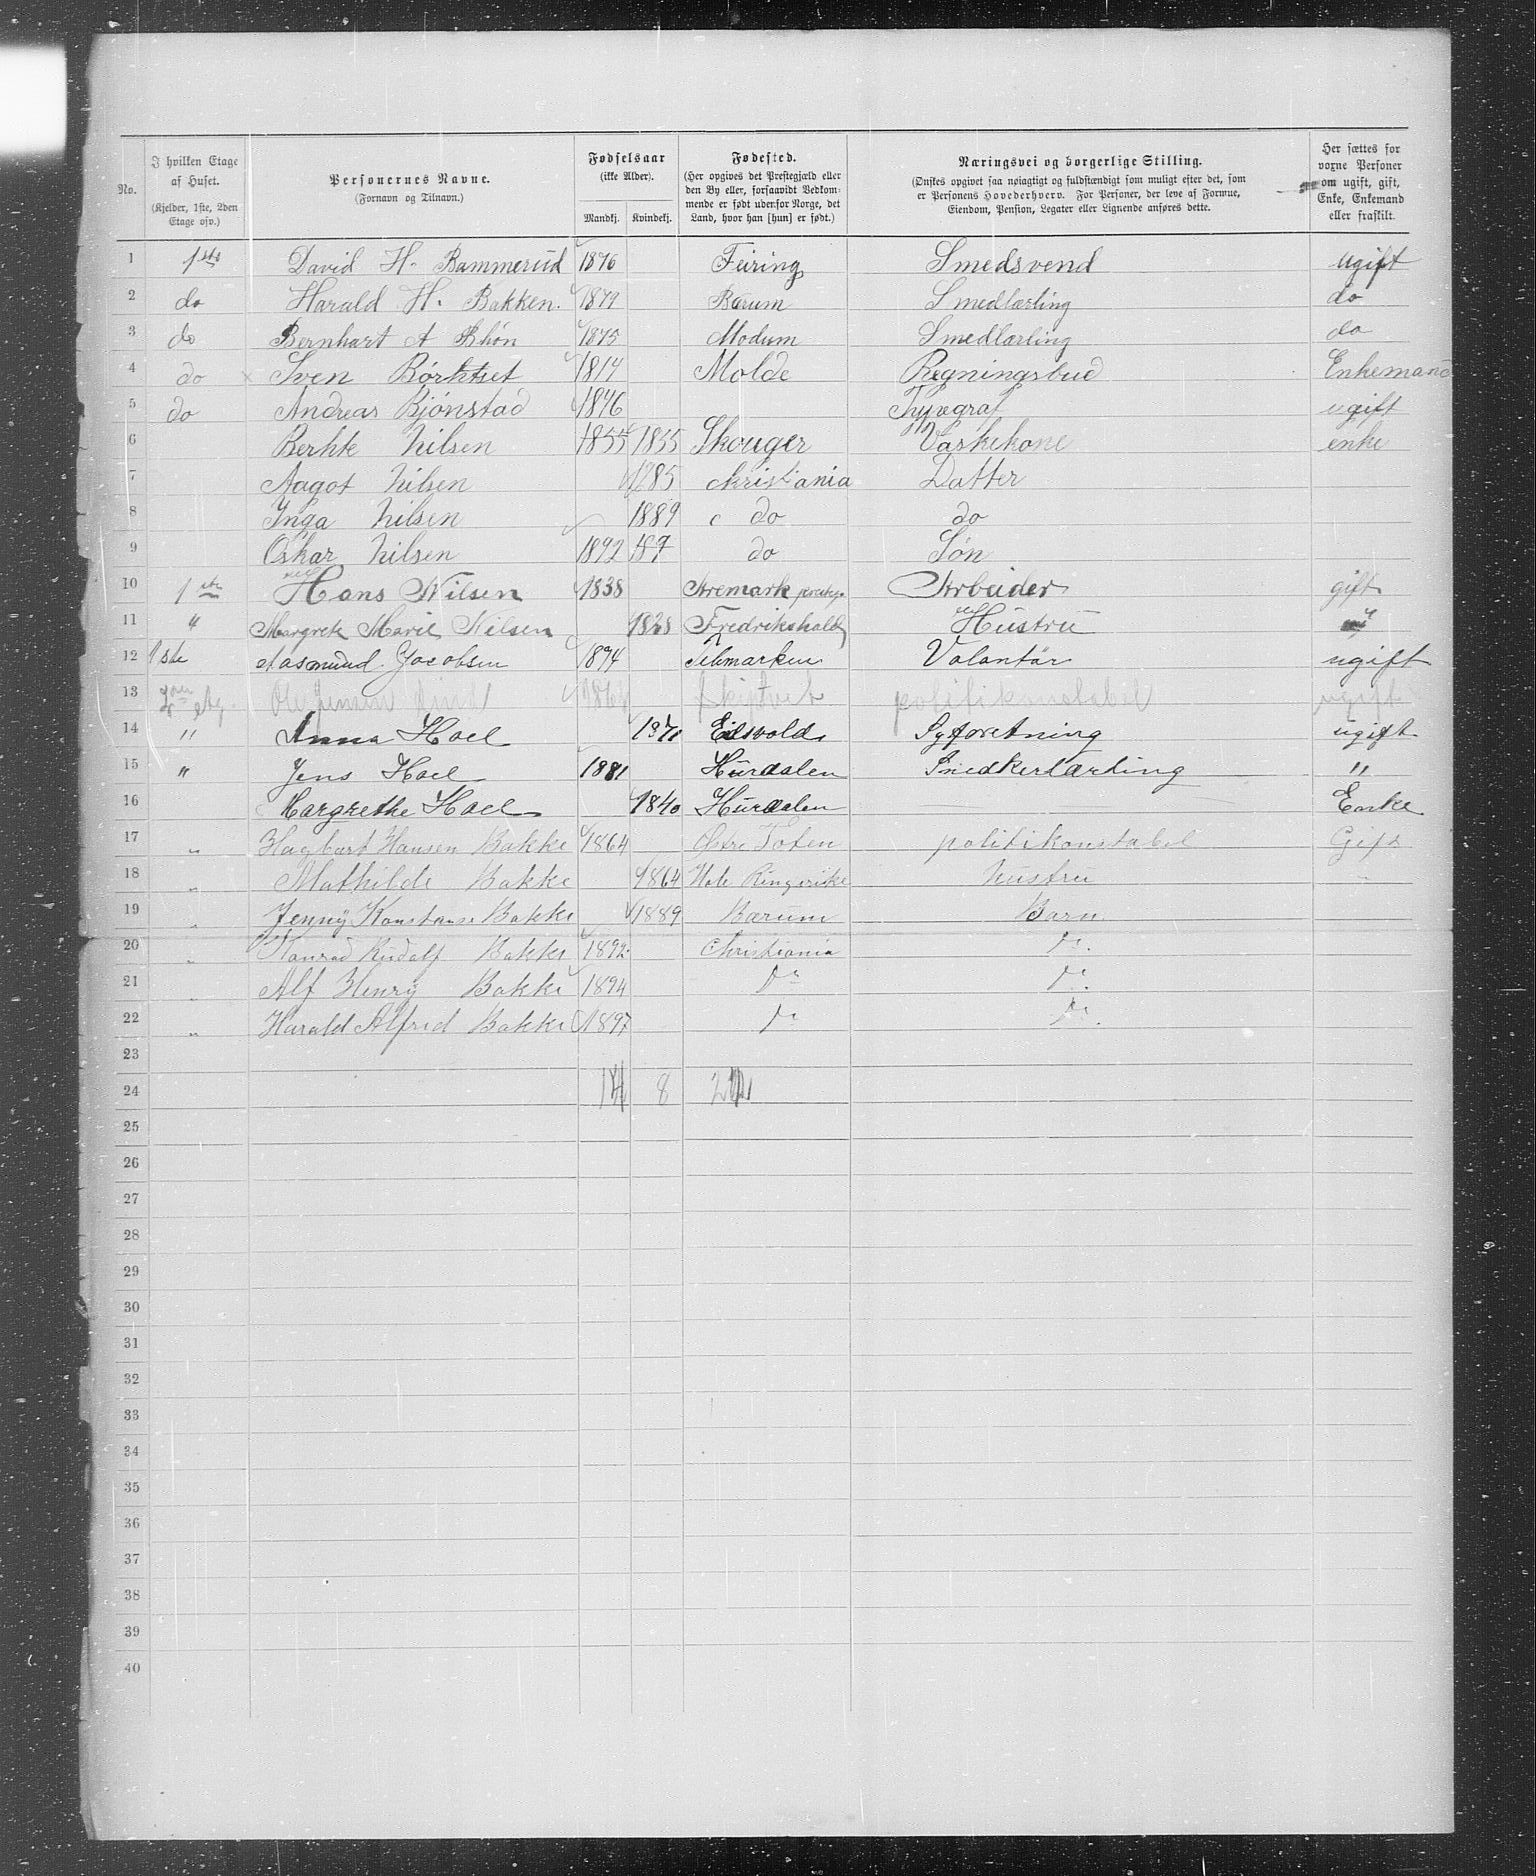 No. I hvilken Etage af Huset. (Kjelder, 1ste, 2den Etage osv.) Personernes Navne. (Fornavn og Tilnavn.) Fødselsaar (ikke Alder). Mandkj. Kvindekj. Fødested. (Her opgives det Prestegjæld eller den By eller, forsaavidt Vedkommende er født udenfor Norge, det Land, hvor han [hun] er født.) Næringsvei og borgerlige Stilling. (Ønskes opgivet saa nøiagtigt og fuldstændigt som muligt efter det, som er Personens Hovederhverv. For Personer, der leve af Formue, Eiendom, Pension, Legater eller Lignende anføres dette. Her sættes for vorne Personer om ugift, gift, Enke, Enkemand eller fraskilt.
1 1ste David H. Bammerud 1876 Feiring Smedsvend ugift
2 do Harald H. Bakken. 1879 Bærum Smedlærling do
3 do Bernhart A Bhón 1875 Modum Smedlærling do
4 do Sven 1814 Molde Regningsbud Enkemand
5 do Andreas Bjónstad 1876 Thypograf ugift
6 Nilsen 1855 1855 Skouger Vaskekone enke
7 Aagot Nilsen 1885 christiania Datter
8 Inga Nilsen 1889 do do
9 Oskar Nilsen 1892 do Són
10 1ste Hans Nilsen 1838 Aremark Arbeider gift
11 " Margrete Marie Nilsen Fredrikshald Hustru
12 1ste Aasmund Jacobsen 1874 Volontär ugift
13 Ole Jensen Skiptvet politikonstabel ugift
14 " Anna Hoel 1871 Eidsvold Syforetning ugift
15 " Jens Hoel 1881 Hurdalen Snedkerlærling "
16 Margrethe Hoel 1840 Hurdalen Enke
17 " Hagbart Hansen Bakke 1864 Østre Toten politikonstabel Gift
18 " Mathilde Bakke 1864 Hole Ringerike hustru "
19 " Jenny Konstanse Bakke 1889 Bærum Barn
20 " Konrad Rudolf Bakke 1892 Christiania Do.
21 " Alf Henry Bakke 1894 Do Do.
22 " Harald Alfred Bakke 1897 Do Do.
23
24 14 8
25
26
27
28
29
30
31
32
33
34
35
36
37
38
39
40